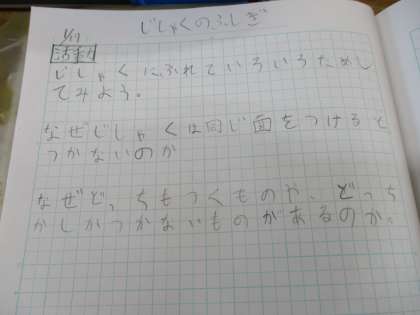 じしゃくのふしぎ
1/17
活動
じしゃくにふれていろいろためし
てみよう。
なぜじしゃくは同じ面をつけると
つかないのか
なぜど、ちもつくものや、どっち
かしかつかないものがあるのか。